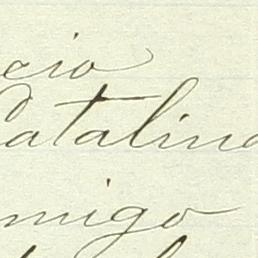 cio
Catalina
migo